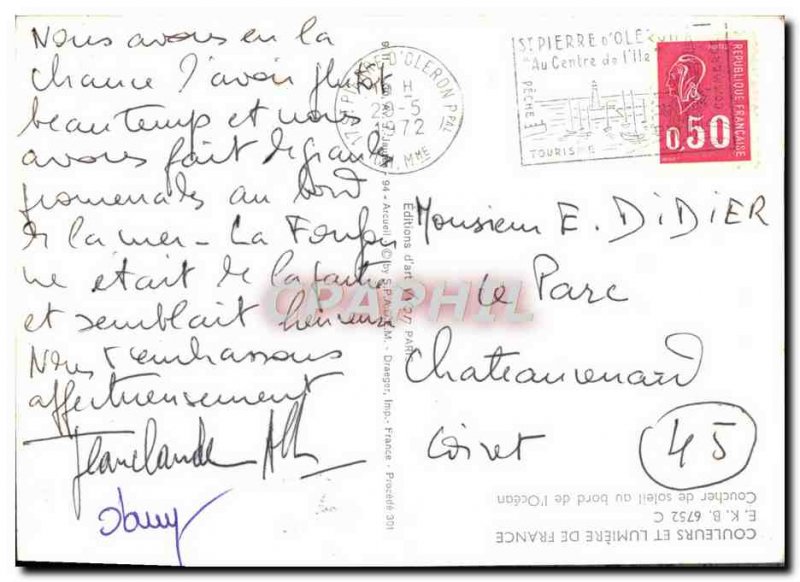 Nous avons eu la
chance d'avoir plutôt
beau temps et nous
avons fait de grandes
promenades au bord
de la mer - La
était de la partie
et semblait heureuse
Nous t'embrassons
affectueusement
Jean claude
Dany
17 St PIERRE D'OLERON Ppal
-5
1972
Mme
St PIERRE d'OLERON
"Au Centre de l'Ile"
PÊCHE
TOURISME
REPUBLIQUE FRANÇAISE
0,50
Monsieur E. DiDiER
Le Parc
Chateaurenard
Loiret
45
Editions d'art YVON PARIS
94 - Arcueil - © by S.P.A.D.E.M. - Draeger, Imp. - France - Procédé 301
COULEURS ET LUMIÈRE DE FRANCE
E. K. B. 6752 C
Coucher de soleil au bord de l'Océan
CPAPHIL